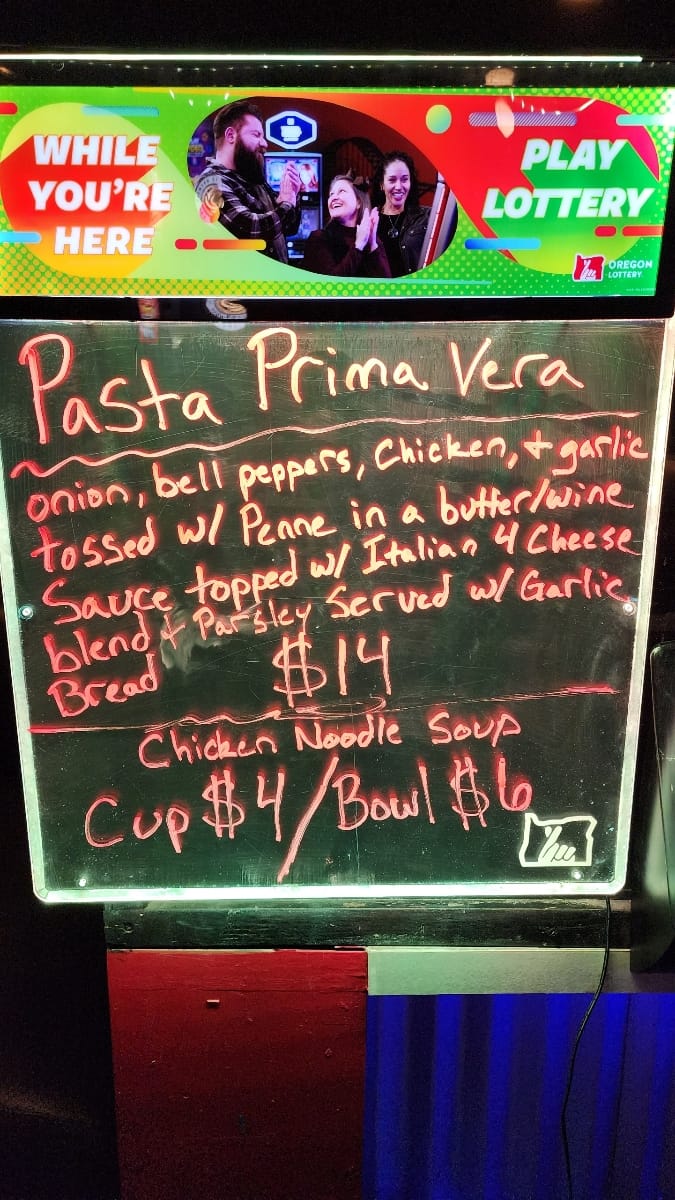 WHILE
YOU'RE
HERE
PLAY
LOTTERY
OREGON
LOTTERY
Pasta Prima Vera
onion, bell peppers, Chicken, + garlic
tossed w/ Penne in a butter/wine
Sauce topped w/ Italian 4 Cheese
blend + Parsley Served w/ Garlic
Bread $14
Chicken Noodle Soup
Cup $4/Bowl $6